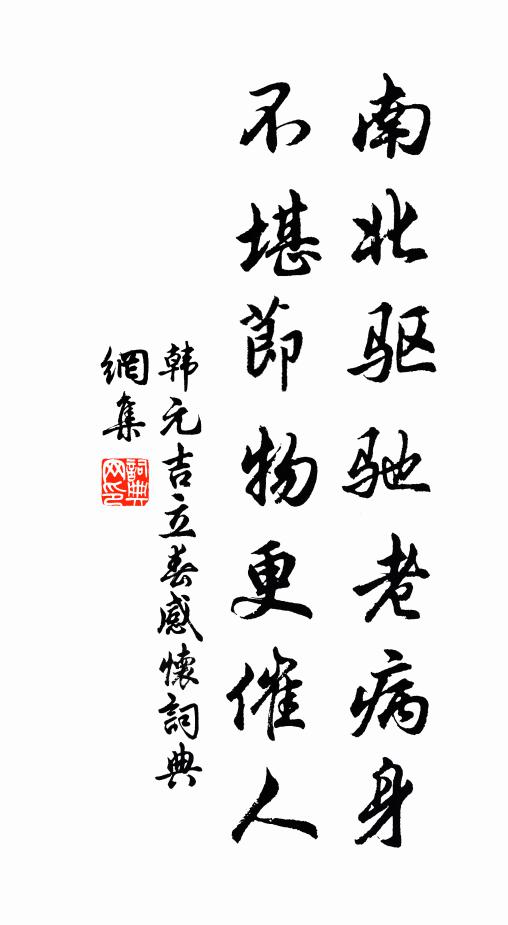 南北驱驰老病身
不堪節物更催人
韩元吉立春感懷詞典
網集
詞典网印